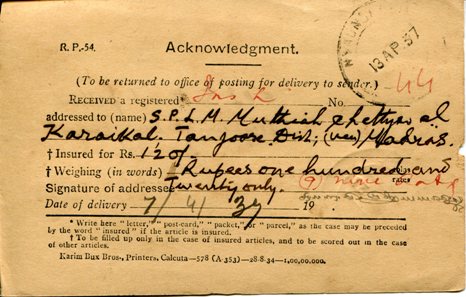 R. P.-54.
Acknowledgment.
13 AP. 37
(To be returned to office of posting for delivery to sender.)
44
RECEIVED a registered* Ins L No.
addressed to (name) S. P. L. M. Muthiah Chettyar al
Karaikal. Tanjoore Dist; (via) Madras.
† Insured for Rs. 120/-
† Weighing (in words) Rupees one hundred and
rates
Signature of addressee twenty only. (9) nine
Date of delivery 7/4/37 19
* Write here "letter," "post-card," "packet," or "parcel," as the case may be preceded
by the word "insured" if the article is insured.
† To be filled up only in the case of insured articles, and to be scored out in the case
of other articles.
Karim Bux Bros., Printers, Calcutta—578 (A-353)—28-8-34—1,00,00,000.